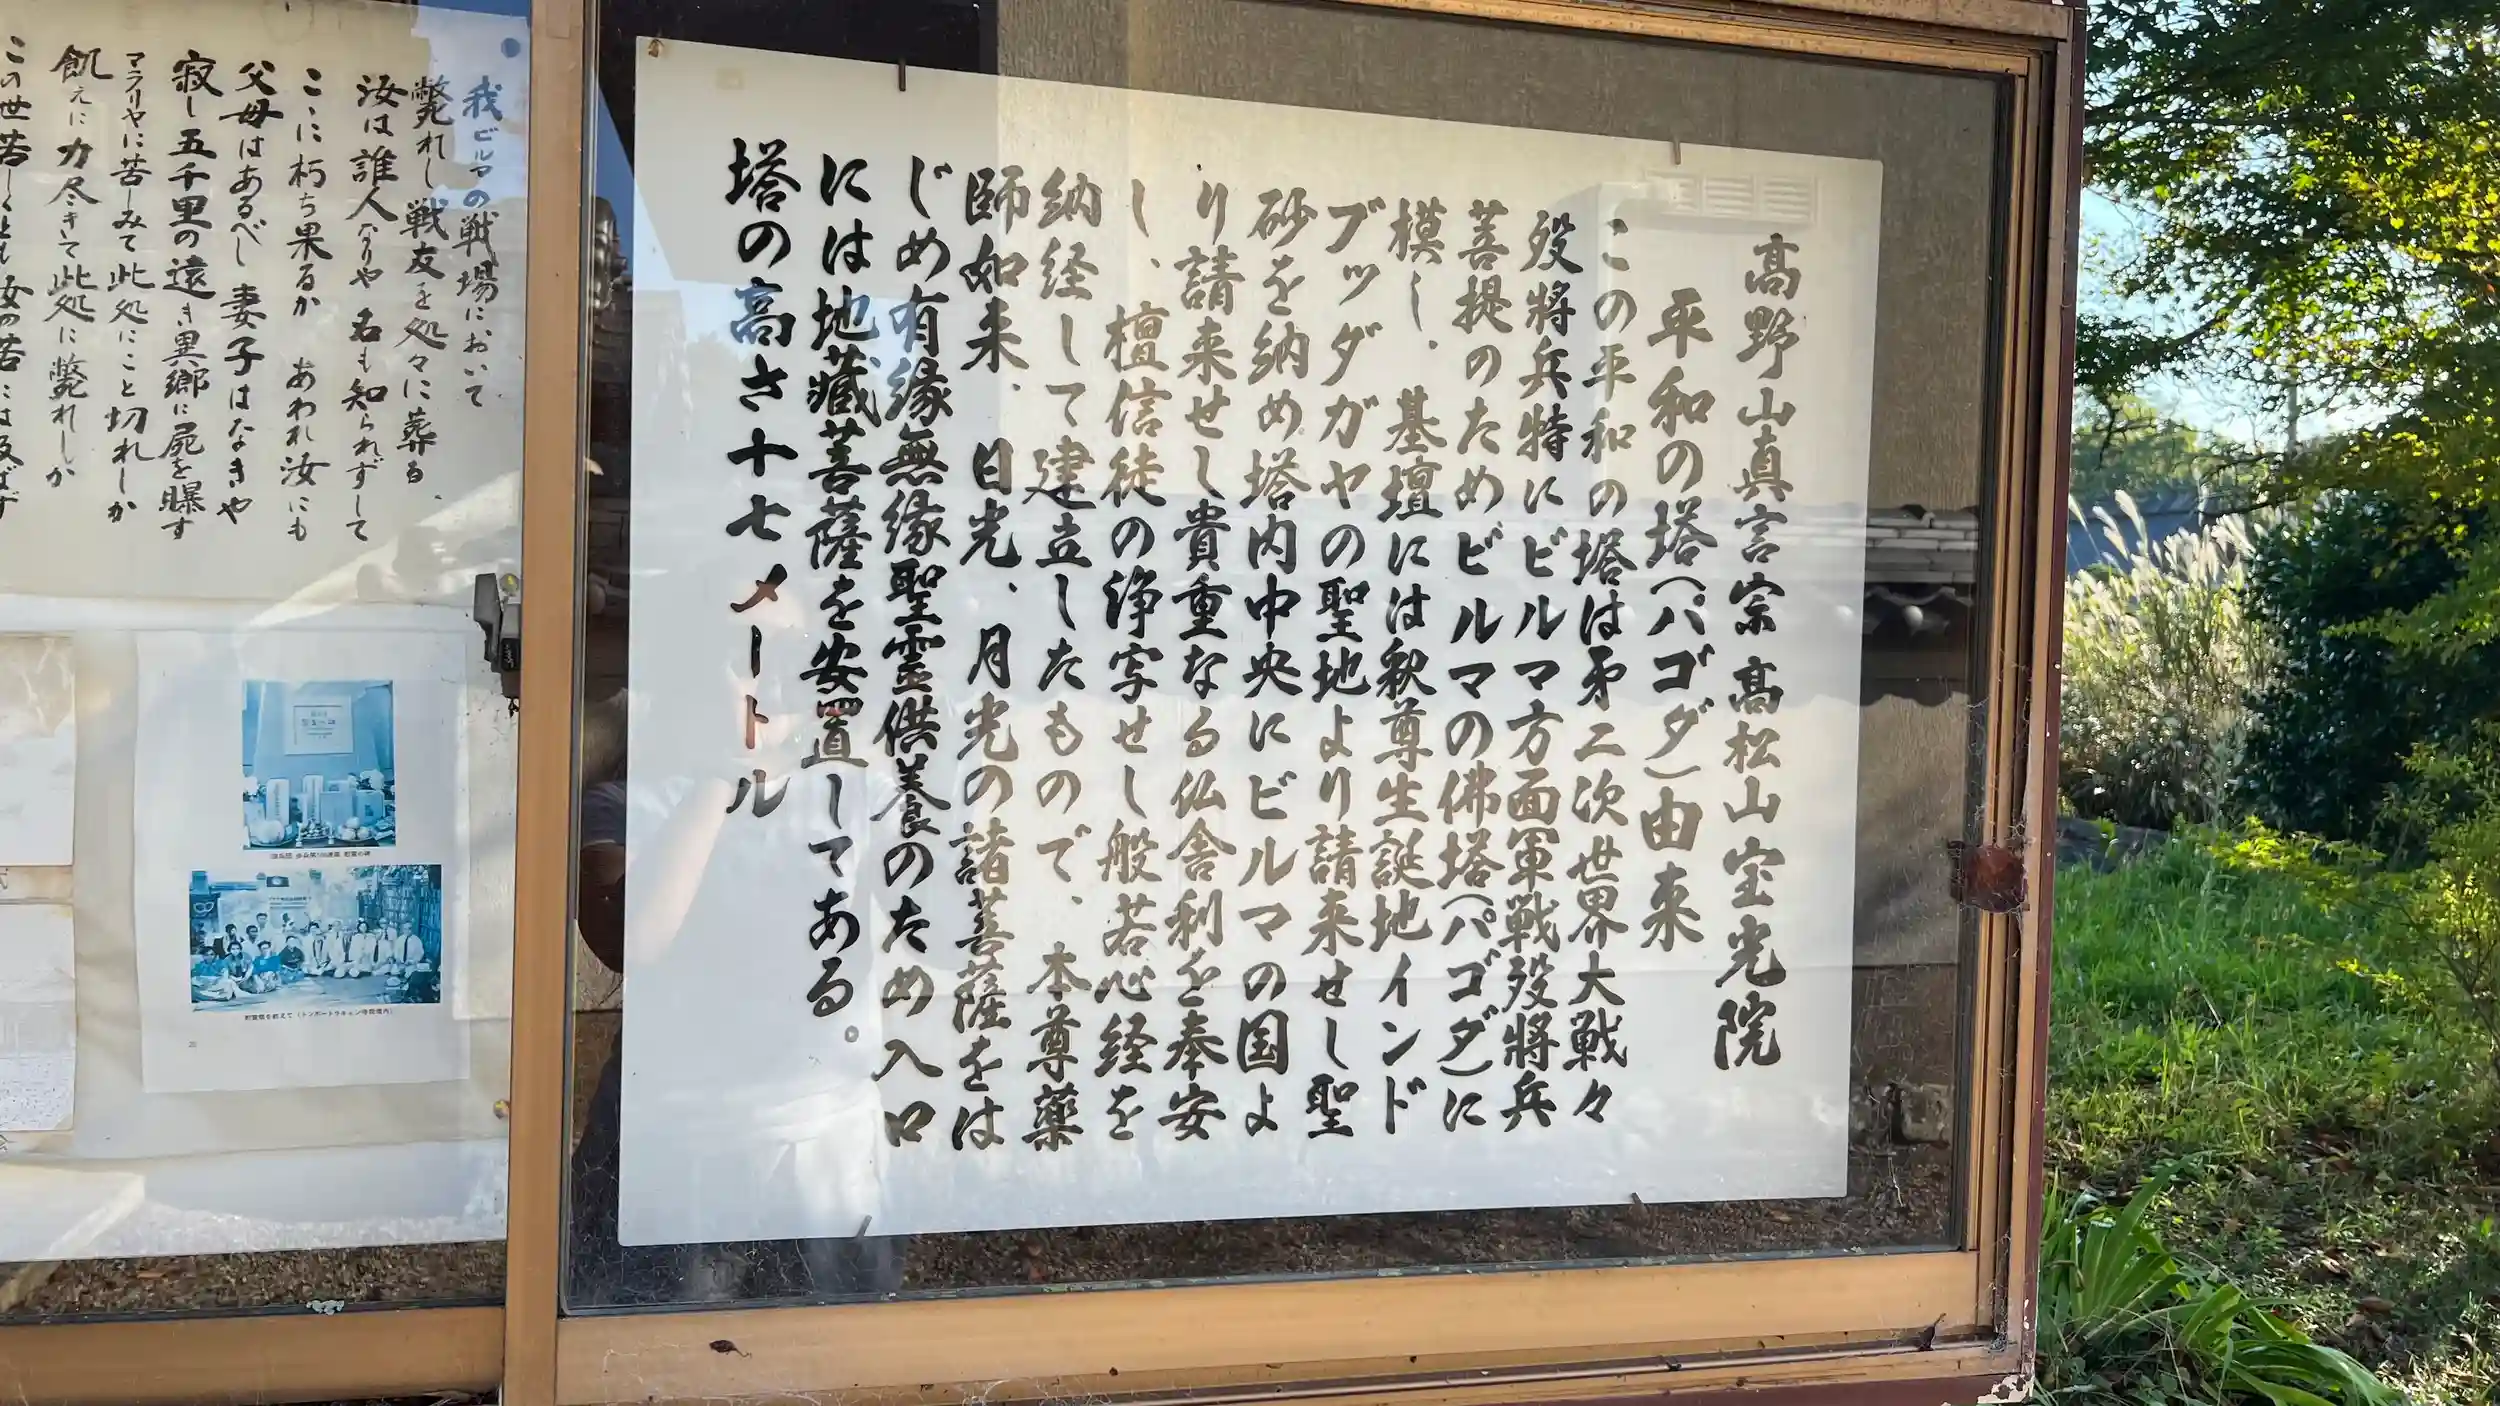 高野山真言宗 高松山宝光院
平和の塔(パゴダ)由来
この平和の塔は㐧二次世界大戦々
歿将兵特にビルマ方面軍戦歿将兵
菩提のためビルマの佛塔(パゴダ)に
模し、基壇には釈尊生誕地インド
ブッダガヤの聖地より請来せし聖
砂を納め塔内中央にビルマの国よ
り請来せし貴重なる仏舎利を奉安
し、檀信徒の浄写せし般若心経を
納経して建立したもので、本尊薬
師如来、日光、月光の諸菩薩をは
じめ有縁無縁聖霊供養のため入口
には地藏菩薩を安置してある。
塔の高さ十七メートル
我ビルマの戦場において
斃れし戦友を処々に葬る、
汝は誰人なりや 名も知られずして
こゝに朽ち果るか あわれ汝にも
父母はあるべし 妻子はなきや
寂し五千里の遠き異郷に屍を曝す
マラリヤに苦しみて此処にこと切れしか
飢えに力尽きて此処に斃れしか